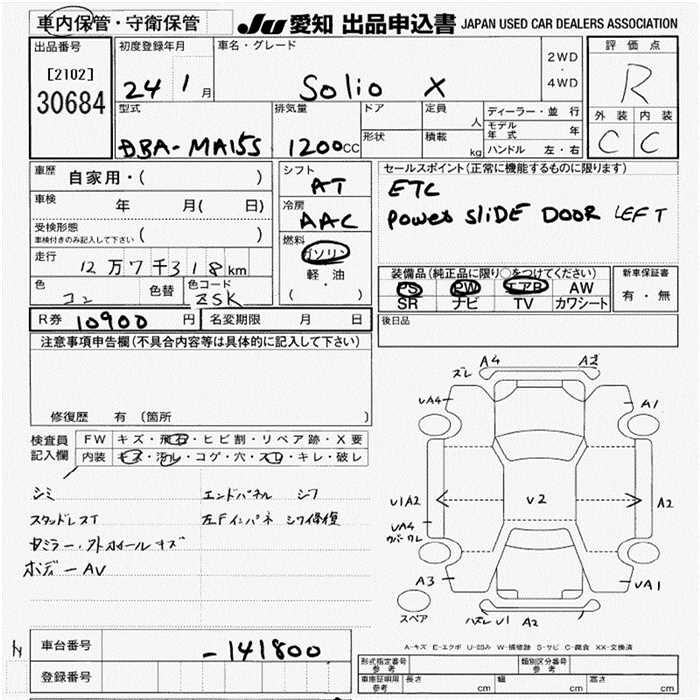 車内保管・守衛保管 JU 愛知 出品申込書 JAPAN USED CAR DEALERS ASSOCIATION
出品番号 初度登録年月 車名・グレード 2WD・4WD 評価点
[2102] 24 1 月 Solio X R
30684
型式 排気量 ドア 定員 人 ディーラー・並行 外装 内装
モデル年式 年
DBA-MA15S 1200cc 形状 積載 kg ハンドル 左・右 C C
車歴 自家用・( ) シフト AT セールスポイント(正常に機能するものに限ります)
ETC
車検 年 月( 日) 冷房 AAC Power SLIDE DOOR LEFT
受検形態
車検付きのみ記入して下さい ( ) 燃料 ガソリン
走行 12万7千318km 軽・油 ( ) 装備品(純正品に限り○をつけてください) 新車保証書
色 コン 色替 色コード ZSK PS PW エアB AW 有・無
SR ナビ TV カワシート
R券 10900 円 名変期限 月 日 後日品
注意事項申告欄(不具合内容等は具体的に記入して下さい)
修復歴 有 (箇所 )
検査員記入欄 FW キズ・飛石・ヒビ割・リペア跡・X要
内装 キズ・汚レ・コゲ・穴・スレ・キレ・破レ
シミ エンドパネル
スタッドレスT 左Fインパネ
ボデーAV
ズレ A4 A2
UA4 A1
U1A2 V2 A2
UA4
A3 UA1
スペア ハズレ U1 A2
A-キズ E-エクボ U-凹み W-補修跡 S-サビ C-腐食 XX-交換済
車台番号 -141800
登録番号
型式指定番号 参考 類別区分番号 参考
車庫証明用 参考 長さ cm 幅 cm 高さ cm